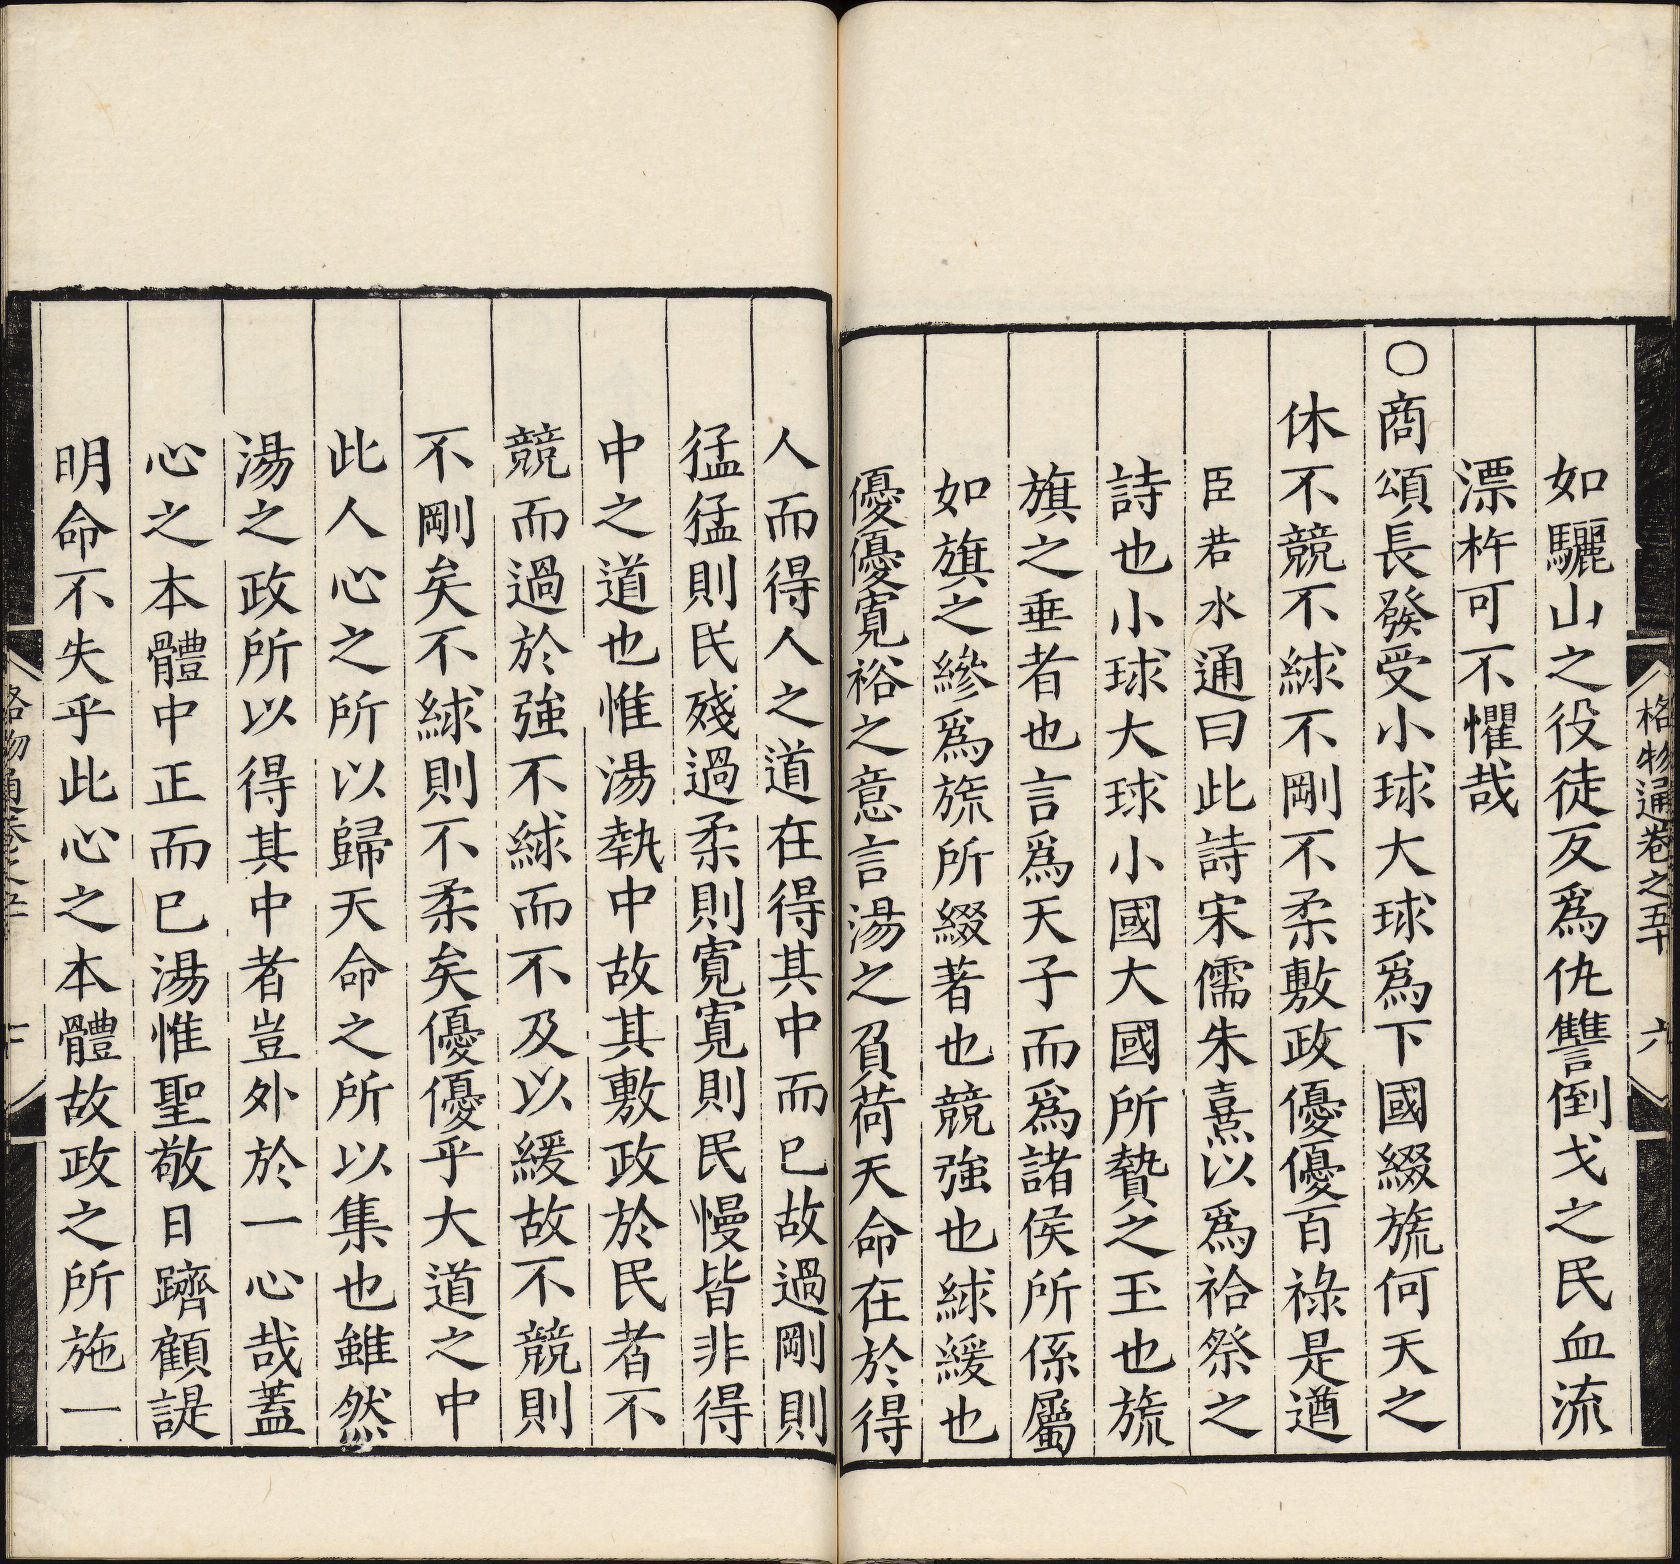 如驪山之役徒反爲仇讐倒戈之民血流
漂杵可不懼哉
○商頌長發受小球大球爲下國綴旒何天之
休不競不絿不剛不柔敷政優優百祿是遒
臣若水通曰此詩宋儒朱熹以爲祫祭之
詩也小球大球小國大國所贄之玉也旒
旗之垂者也言爲天子而爲諸侯所係屬
如旗之縿爲旒所綴著也競強也絿緩也
優優寛裕之意言湯之負荷天命在於得
人而得人之道在得其中而已故過剛則
猛猛則民殘過柔則寛寛則民慢皆非得
中之道也惟湯執中故其敷政於民者不
競而過於強不絿而不及以緩故不競則
不剛矣不絿則不柔矣優優乎大道之中
此人心之所以歸天命之所以集也雖然
湯之政所以得其中者豈外於一心哉蓋
心之本體中正而已湯惟聖敬日躋顧諟
明命不失乎此心之本體故政之所施一
格物通卷之五十
六